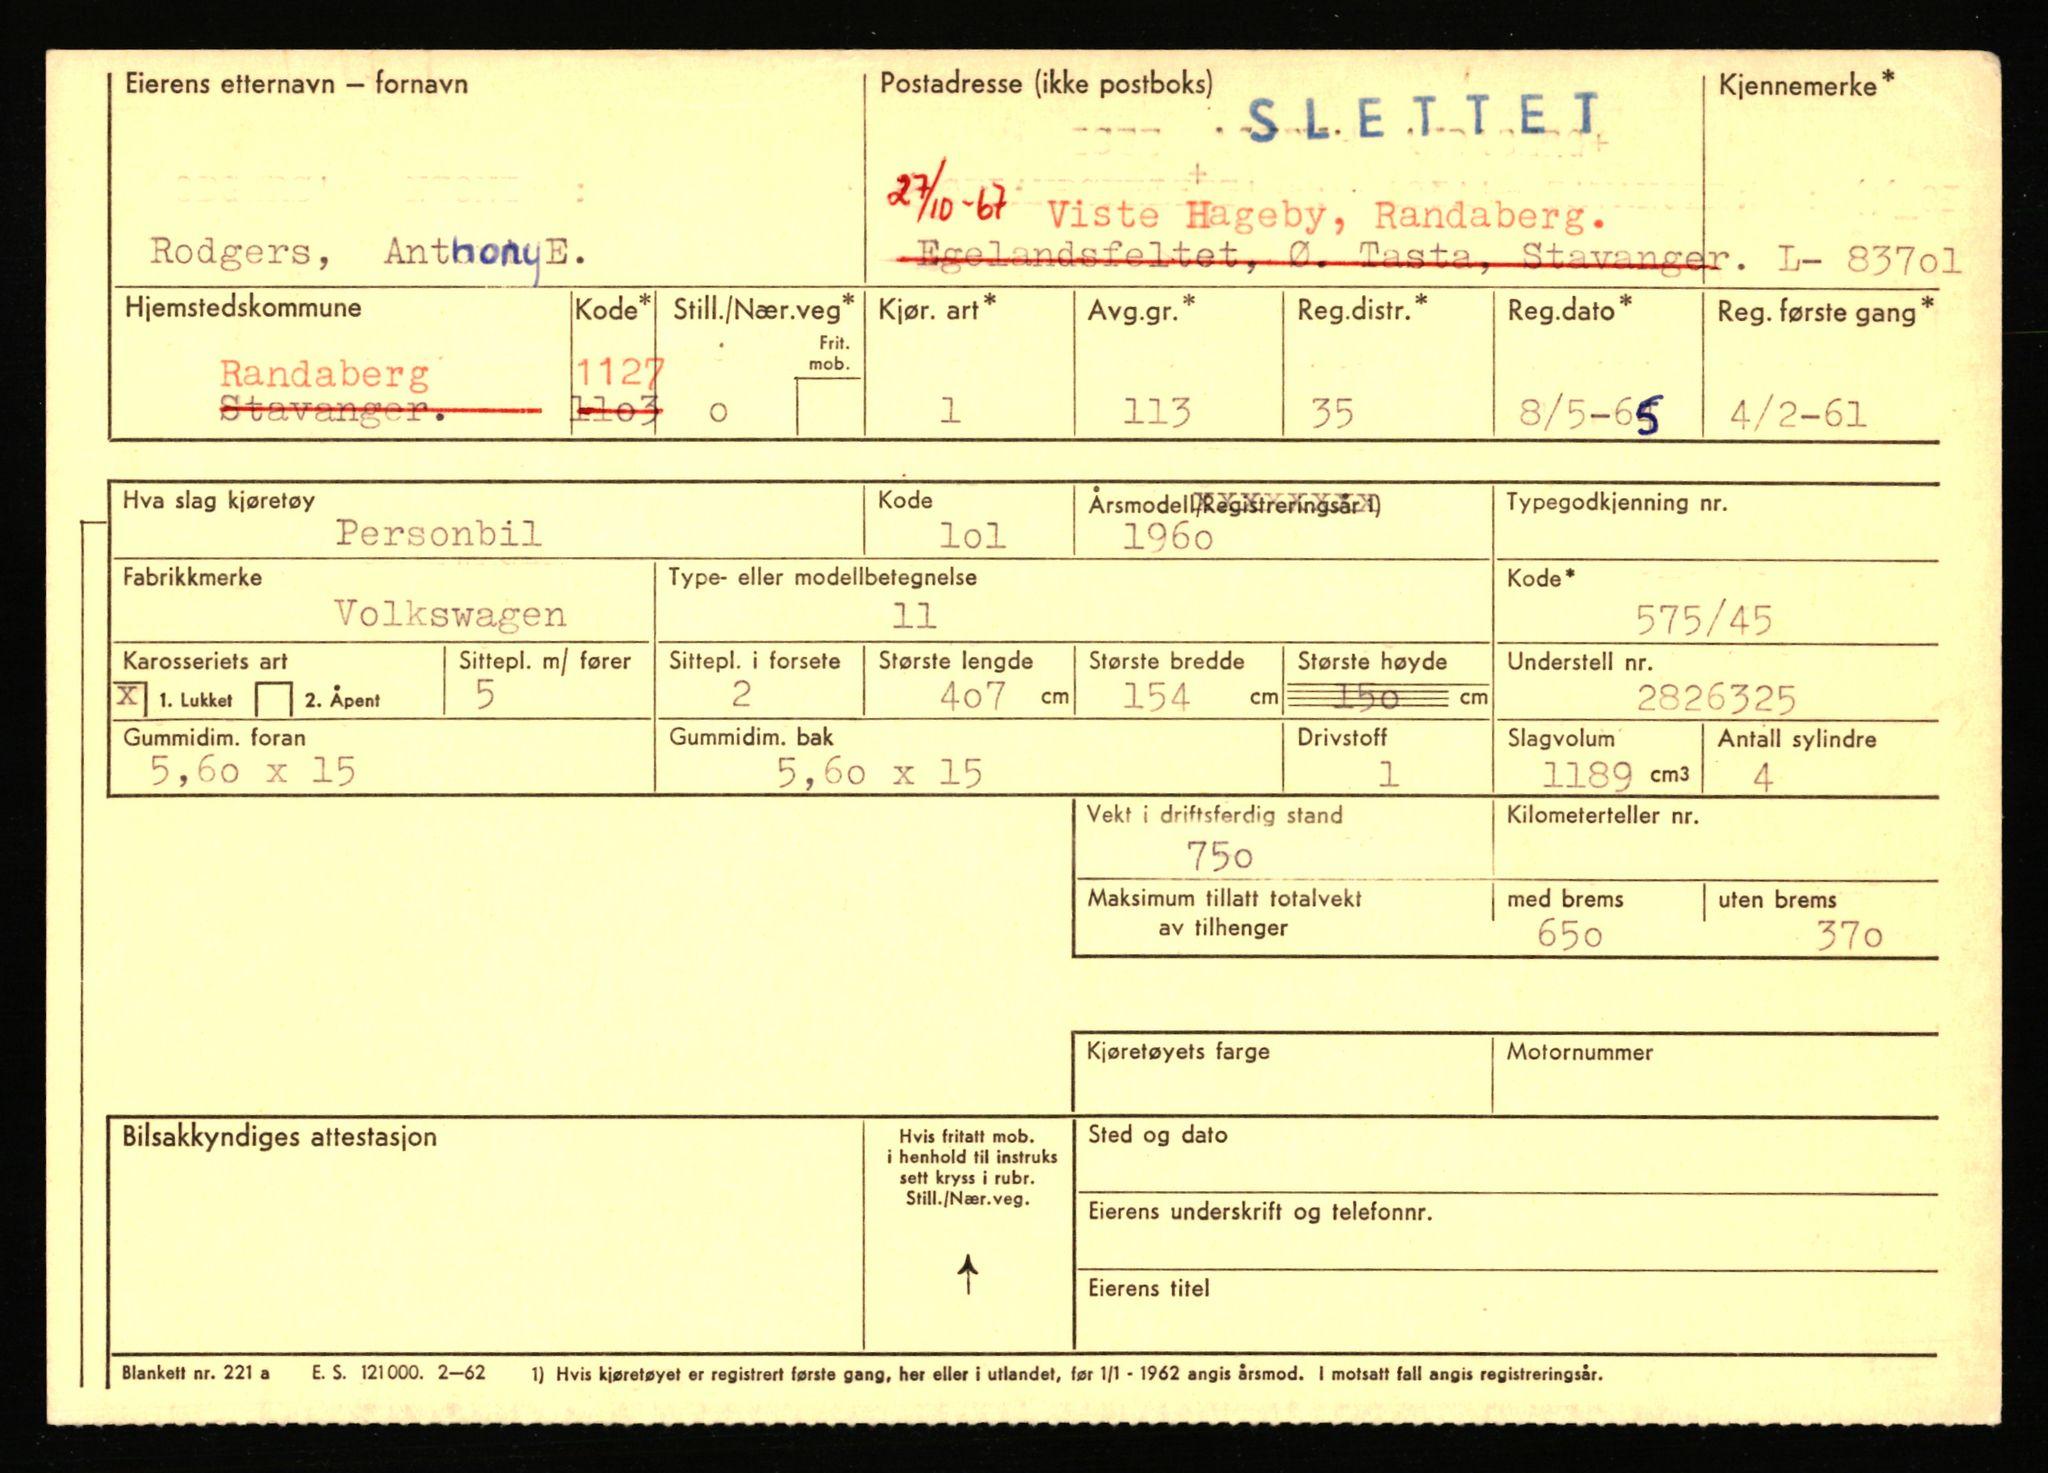 Eierens etternavn – fornavn
Postadresse (ikke postboks)
Kjennemerke*
SLETTET
27/10-67 Viste Hageby, Randaberg.
Rodgers, Anthony E.
Egelandsfeltet, Ø. Tasta, Stavanger.
L- 837o1
Hjemstedskommune
Kode*
Still./Nær.veg*
Frit. mob.
Kjør. art*
Avg.gr.*
Reg.distr.*
Reg.dato*
Reg. første gang*
Randaberg 1127
Stavanger. 11o3 o 1 113 35 8/5-65 4/2-61
Hva slag kjøretøy
Kode
Årsmodell/Registreringsår 1)
Typegodkjenning nr.
Personbil 1o1 196o
Fabrikkmerke
Type- eller modellbetegnelse
Kode*
Volkswagen 11 575/45
Karosseriets art
Sittepl. m/ fører
Sittepl. i forsete
Største lengde
Største bredde
Største høyde
Understell nr.
X 1. Lukket 2. Åpent 5 2 4o7 cm 154 cm 15o cm 2826325
Gummidim. foran
Gummidim. bak
Drivstoff
Slagvolum
Antall sylindre
5,6o x 15 5,6o x 15 1 1189 cm3 4
Vekt i driftsferdig stand
Kilometerteller nr.
75o
Maksimum tillatt totalvekt
av tilhenger
med brems
uten brems
65o 37o
Kjøretøyets farge
Motornummer
Bilsakkyndiges attestasjon
Hvis fritatt mob.
i henhold til instruks
sett kryss i rubr.
Still./Nær.veg.
Sted og dato
Eierens underskrift og telefonnr.
Eierens titel
Blankett nr. 221 a E. S. 121000. 2–62 1) Hvis kjøretøyet er registrert første gang, her eller i utlandet, før 1/1 - 1962 angis årsmod. I motsatt fall angis registreringsår.